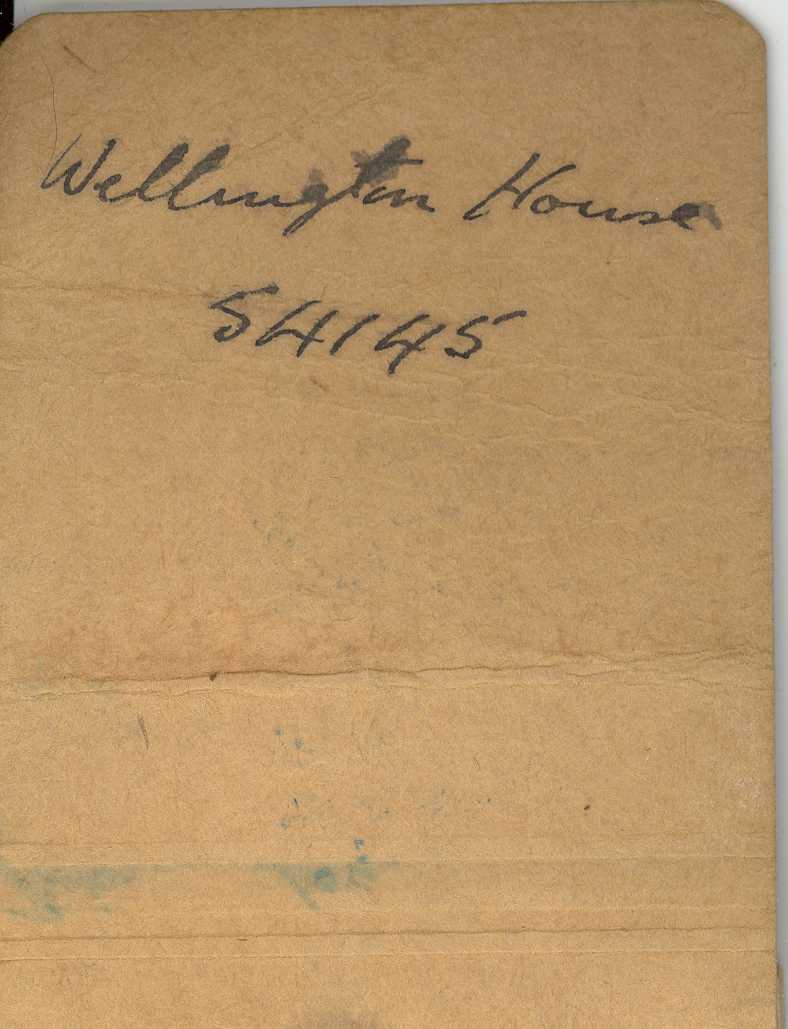 Wellington House
54145